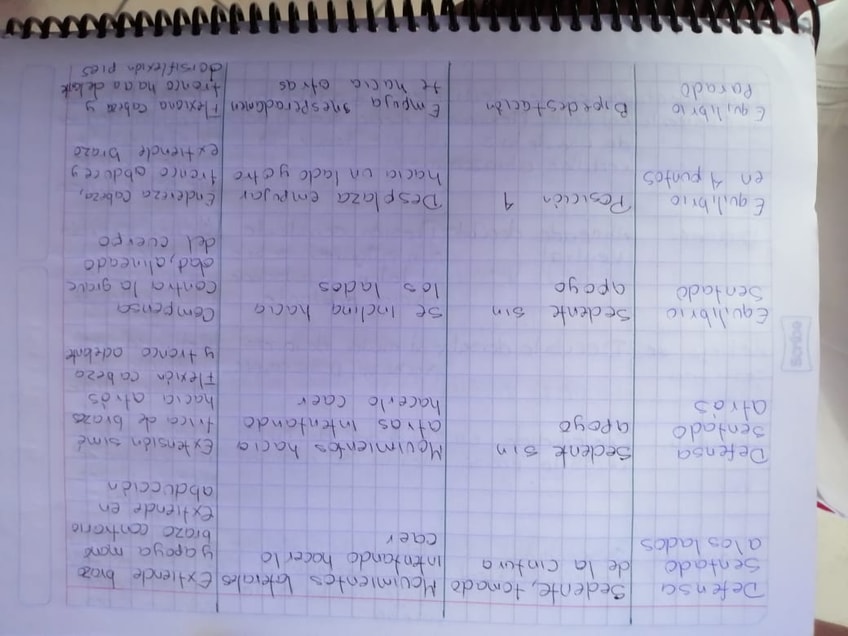 Defensa
Sentado
a los lados
Sedente, tomado
de la cintura
Movimientos laterales
intentando hacerlo
caer
Extiende brazo
y apoya mano
brazo contrario
extiende en
abducción
Defensa
Sentado
atrás
Sedente sin
apoyo
Movimientos hacia
atras intentando
hacerlo caer
Extensión simé
trica de brazos
hacia atrás
Flexión cabeza
y tronco adelante
Equilibrio
Sentado
Sedente sin
apoyo
Se inclina hacia
los lados
Compensa
contra la grave
dad, alineado
del cuerpo
Equilibrio
en 4 puntos
Posición 4
Desplaza empujar
hacia un lado y otro
Endereza cabeza,
tronco abduce y
extiende brazo
Equilibrio
Parado
Bipedestación
Empuja inesperadamen
te hacia atras
Flexiona cabeza y
tronco hacia delante
dorsiflexión pies
Scribe